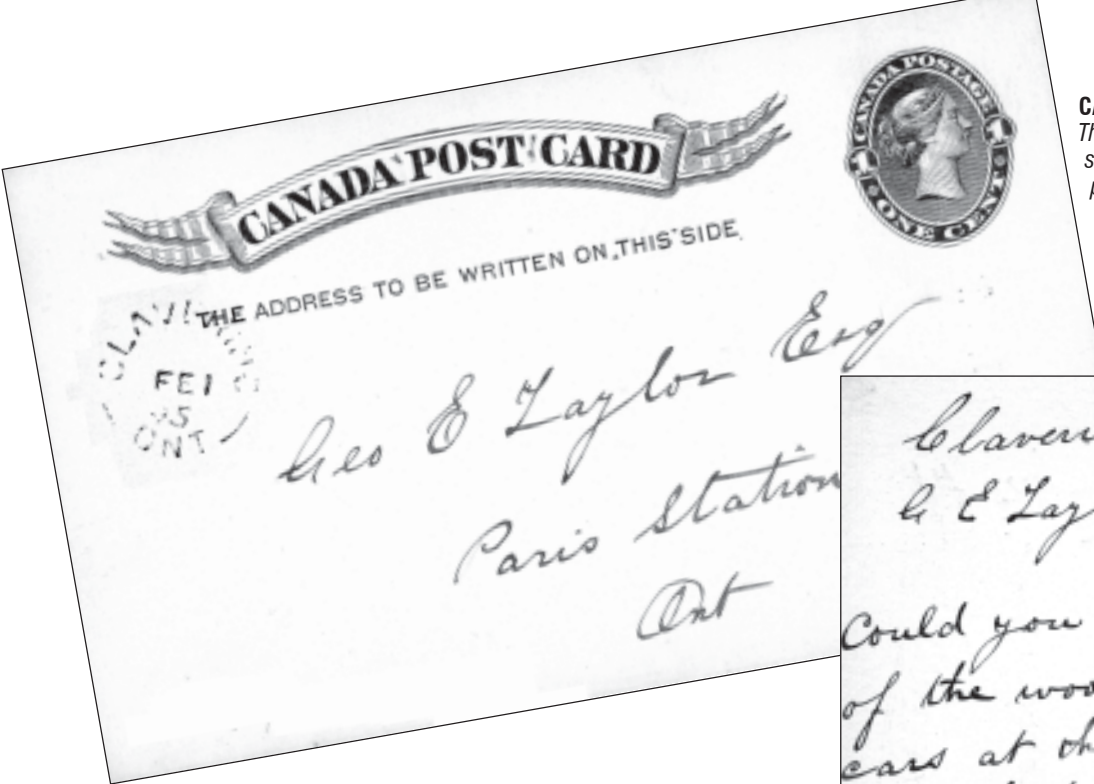 CANADA POST CARD
CANADA POSTAGE
ONE CENT
THE ADDRESS TO BE WRITTEN ON THIS SIDE.
FE 1
ONT
Geo E Taylor Esq
Paris Station
Ont
G E Tay
Could you
of the woo
cars at